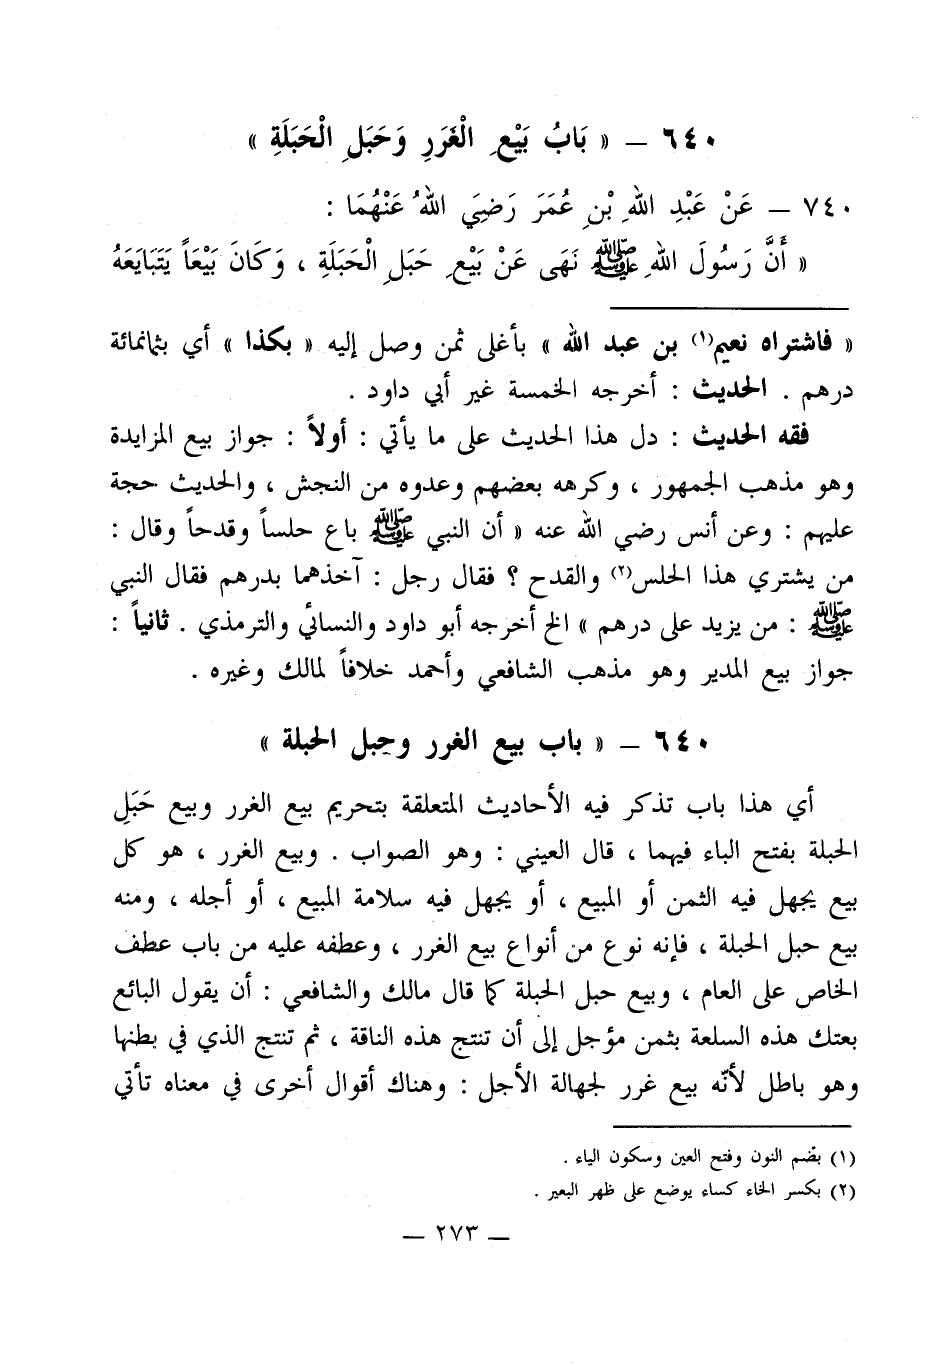 ٦٤٠ – « بَابُ بَيْعِ الْغَرَرِ وَحَبَلِ الْحَبَلَةِ »
٧٤٠ – عَنْ عَبْدِ اللهِ بْنِ عُمَرَ رَضِيَ اللهُ عَنْهُمَا :
« أَنَّ رَسُولَ اللهِ ﷺ نَهَى عَنْ بَيْعِ حَبَلِ الْحَبَلَةِ ، وَكَانَ بَيْعَاً يَتَبَايَعَهُ
« فاشتراه نعيم(١) بن عبد الله » بأغلى ثمن وصل إليه « بكذا » أي بثمانمائة
درهم . الحديث : أخرجه الخمسة غير أبي داود .
فقه الحديث : دل هذا الحديث على ما يأتي : أولاً : جواز بيع المزايدة
وهو مذهب الجمهور ، وكرهه بعضهم وعدوه من النجش ، والحديث حجة
عليهم : وعن أنس رضي الله عنه « أن النبي ﷺ باع حلساً وقدحاً وقال :
من يشتري هذا الحلس(٢) والقدح ؟ فقال رجل : آخذهما بدرهم فقال النبي
ﷺ : من يزيد على درهم » الخ أخرجه أبو داود والنسائي والترمذي . ثانياً :
جواز بيع المدير وهو مذهب الشافعي وأحمد خلافاً لمالك وغيره .
٦٤٠ – « باب بيع الغرر وحبل الحبلة »
أي هذا باب تذكر فيه الأحاديث المتعلقة بتحريم بيع الغرر وبيع حَبَلِ
الحبلة بفتح الباء فيهما ، قال العيني : وهو الصواب . وبيع الغرر ، هو كل
بيع يجهل فيه الثمن أو المبيع ، أو يجهل فيه سلامة المبيع ، أو أجله ، ومنه
بيع حبل الحبلة ، فإنه نوع من أنواع بيع الغرر ، وعطفه عليه من باب عطف
الخاص على العام ، وبيع حبل الحبلة كما قال مالك والشافعي : أن يقول البائع
بعتك هذه السلعة بثمن مؤجل إلى أن تنتج هذه الناقة ، ثم تنتج الذي في بطنها
وهو باطل لأنّه بيع غرر لجهالة الأجل : وهناك أقوال أخرى في معناه تأتي
(١) بضم النون وفتح العين وسكون الياء .
(٢) بكسر الخاء كساء يوضع على ظهر البعير .
– ٢٧٣ –